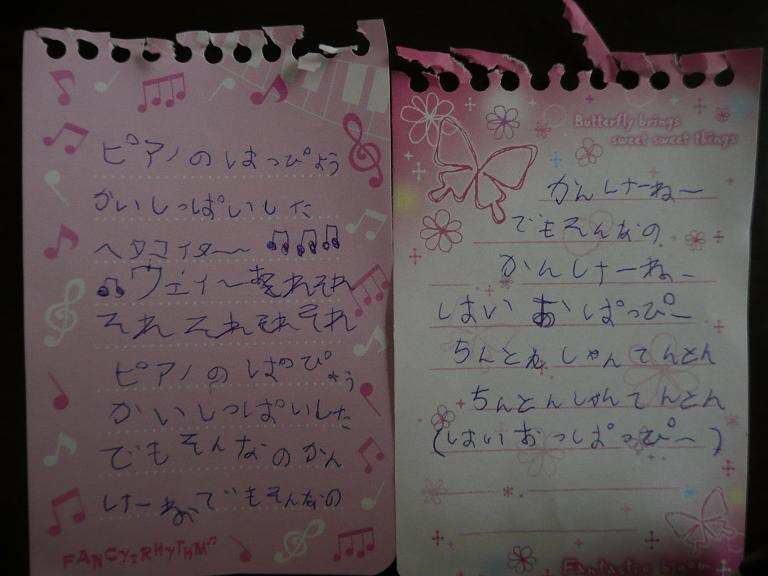 ピアノのはっぴょう
かいしっぱいした
ヘタコイター
ヴェイ〜それそれ
それそれそれそれ
ピアノのはっぴょう
かいしっぱいした
でもそんなのかん
けーねーでもそんなの
FANCY RHYTHM
Butterfly brings
sweet sweet things
かんけーねー
でもそんなの
かんけーねー
はいおぱっぴー
ちんとんしゃんてんとん
ちんとんしゃんてんとん
(はいおっぱっぴー)
Fantastic bloom